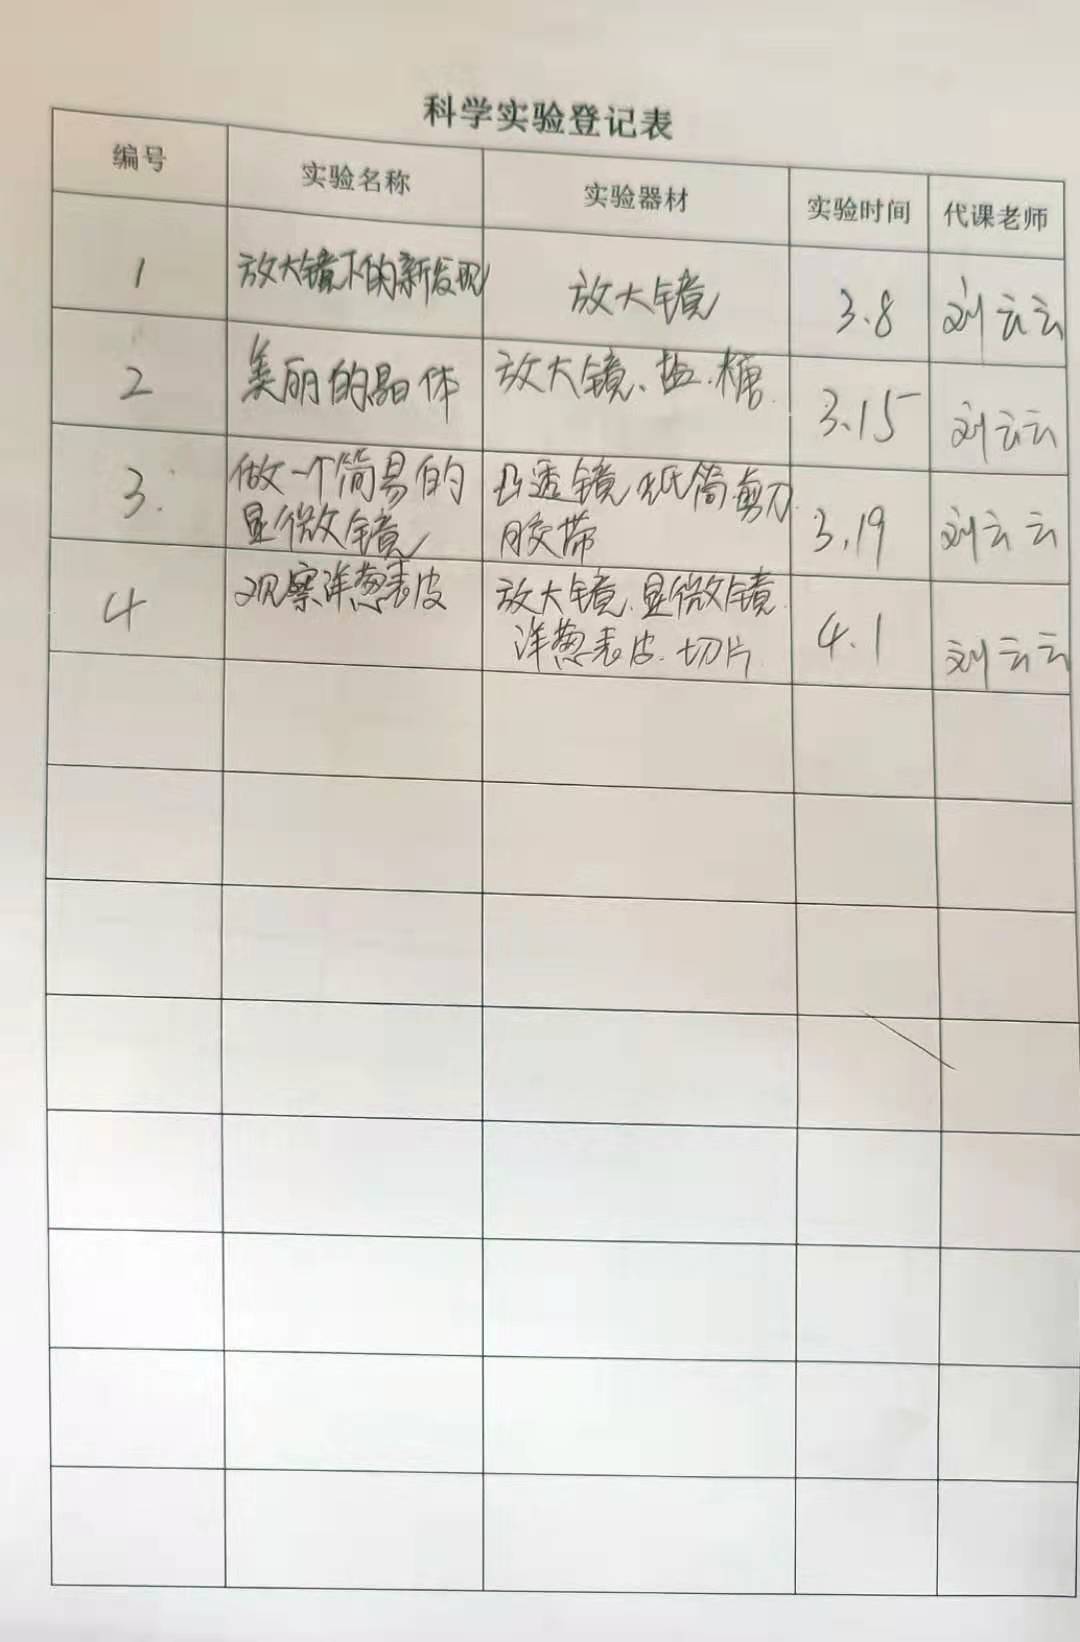 科学实验登记表
编号 实验名称 实验器材 实验时间 代课老师
1 放大镜下的新发现 放大镜 3.8 刘云云
2 美丽的晶体 放大镜、盐.糖 3.15 刘云云
3. 做一个简易的 凸透镜.纸筒.剪刀. 3.19 刘云云
显微镜 胶带
4 观察洋葱表皮 放大镜.显微镜. 4.1 刘云云
洋葱表皮.切片